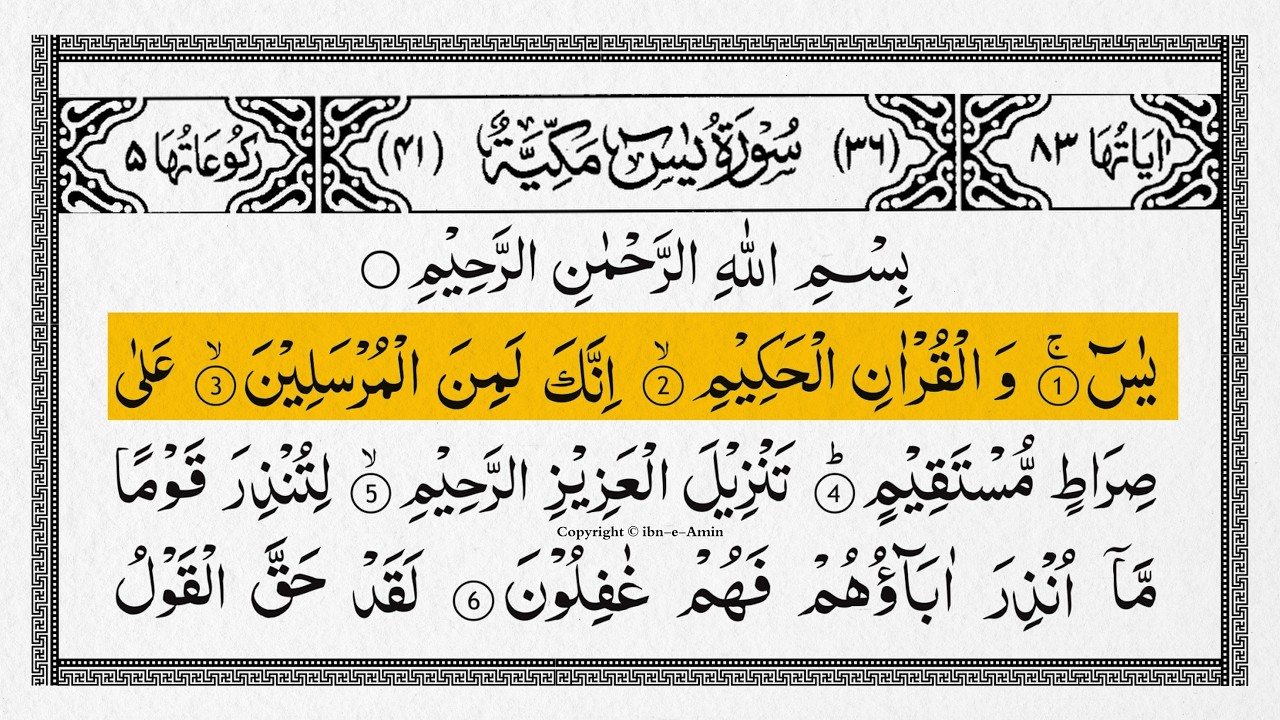 اٰيَاتُهَا ٨٣ (٣٦) سُوْرَةُ يٰسٓ مَكِّيَّةٌ (٤١) رَكُوْعَاتُهَا ٥
بِسْمِ اللّٰهِ الرَّحْمٰنِ الرَّحِيْمِ ○
يٰسٓ ۚ ① وَ الْقُرْاٰنِ الْحَكِيْمِ ۙ ② اِنَّكَ لَمِنَ الْمُرْسَلِيْنَ ۙ ③ عَلٰى
صِرَاطٍ مُّسْتَقِيْمٍ ؕ ④ تَنْزِيْلَ الْعَزِيْزِ الرَّحِيْمِ ۙ ⑤ لِتُنْذِرَ قَوْمًا
Copyright © ibn-e-Amin
مَّاۤ اُنْذِرَ اٰبَآؤُهُمْ فَهُمْ غٰفِلُوْنَ ⑥ لَقَدْ حَقَّ الْقَوْلُ